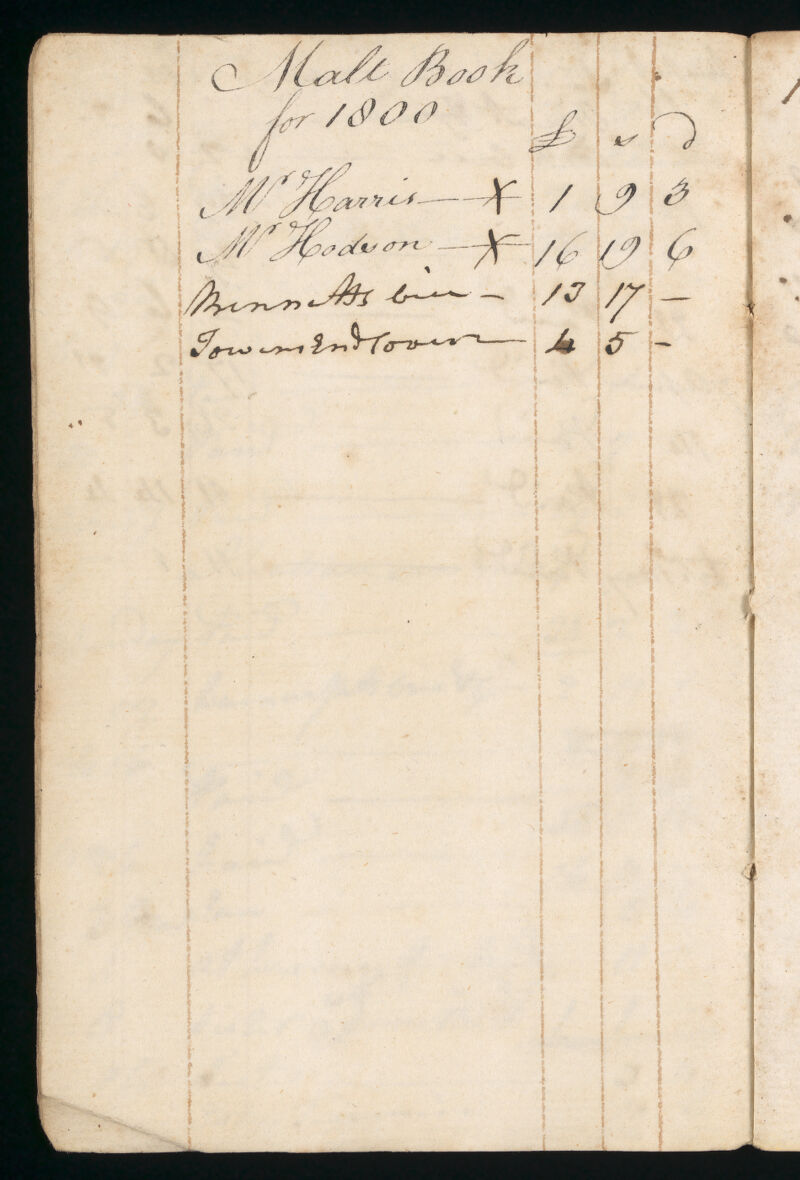 Malt Book
for 1800
£ s d
Mr Harris — X 1 9 3
Mr Hodson — X 16 19 6
Bennetts bill - 13 17 —
4 5 -